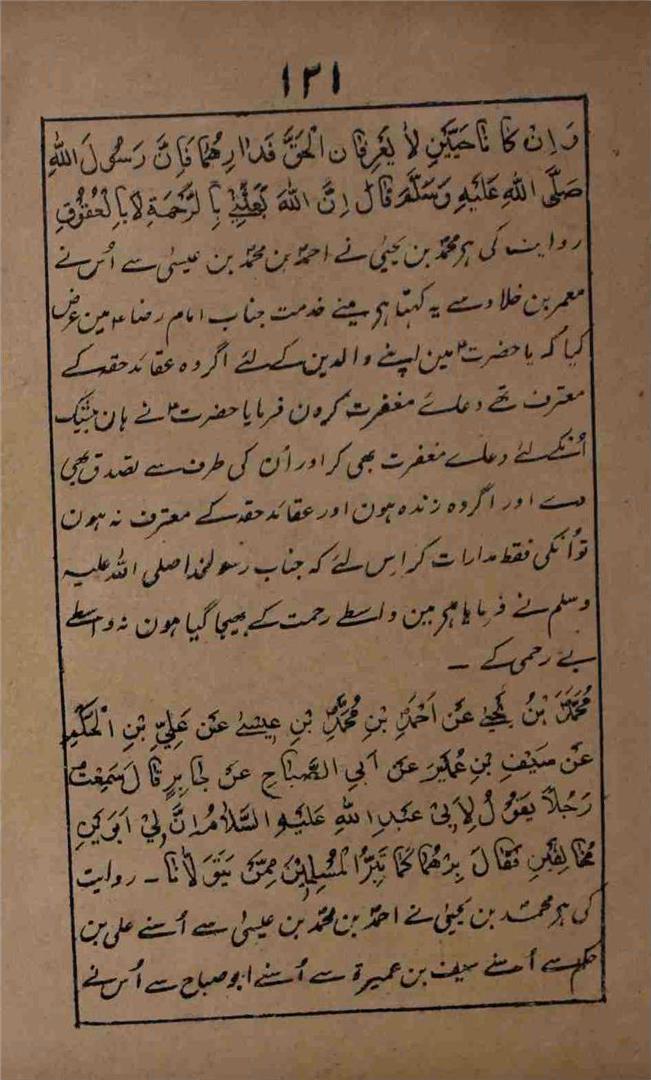 ۱۲۱
وَاِنْ كَانَا حَيَّيْنِ لَا يَعْرِفَانِ الْحَقَّ فَدَارِهُمَا فَاِنَّ رَسُوْلَ اللّٰهِ
صَلَّى اللّٰهُ عَلَيْهِ وَسَلَّمَ قَالَ اِنَّ اللّٰهَ بَعَثَنِيْ بِالرَّحْمَةِ لَا بِالْعُقُوْقِ
روایت کی ہر محمّد بن یحییٰ نے احمد بن محمّد بن عیسیٰ سے اُس نے
معمر بن خلاد سے یہ کہتا ہر مینے خدمت جناب امام رضا ۴ مین عرض
کیا کہ یا حضرت ۴ مین اپنے والدین کے لئے اگر وہ عقائد حقہ کے
معترف تھے دعائے مغفرت کرون فرمایا حضرت ۴ نے ہان بیشک
اُنکے لئے دعاے مغفرت بھی کر اور اُن کی طرف سے تصدق بھی
دے اور اگر وہ زندہ ہون اور عقائد حقہ کے معترف نہ ہون
تو اُنکی فقط مدارات کر اس لئے کہ جناب رسولخدا صلی اللہ علیہ
وسلم نے فرمایا ہر مین واسطے رحمت کے بھیجا گیا ہون نہ واسطے
بے رحمی کے ۔
مُحَمَّدُ بْنُ يَحْيٰى عَنْ اَحْمَدَ بْنِ مُحَمَّدِ بْنِ عِيْسٰى عَنْ عَلِيِّ بْنِ الْحَكَمِ
عَنْ سَيْفِ بْنِ عُمَيْرَ عَنْ اَبِي الصَّبَاحِ عَنْ جَابِرٍ قَالَ سَمِعْتُ
رَجُلًا يَقُوْلُ لِاَبِيْ عَبْدِ اللّٰهِ عَلَيْهِ السَّلَامُ اِنَّ لِيْ اَبَوَيْنِ
مُخَالِفَيْنِ فَقَالَ بِرَّهُمَا كَمَا تَبِرُّ الْمُسْلِمِيْنَ مِمَّنْ يَتَوَلَّانَا ۔ روایت
کی ہر محمد بن یحییٰ نے احمد بن محمّد بن عیسیٰ سے اُسنے علی بن
حکم سے اُسنے سیف بن عمیرۃ سے اُسنے ابو صباح سے اُس نے